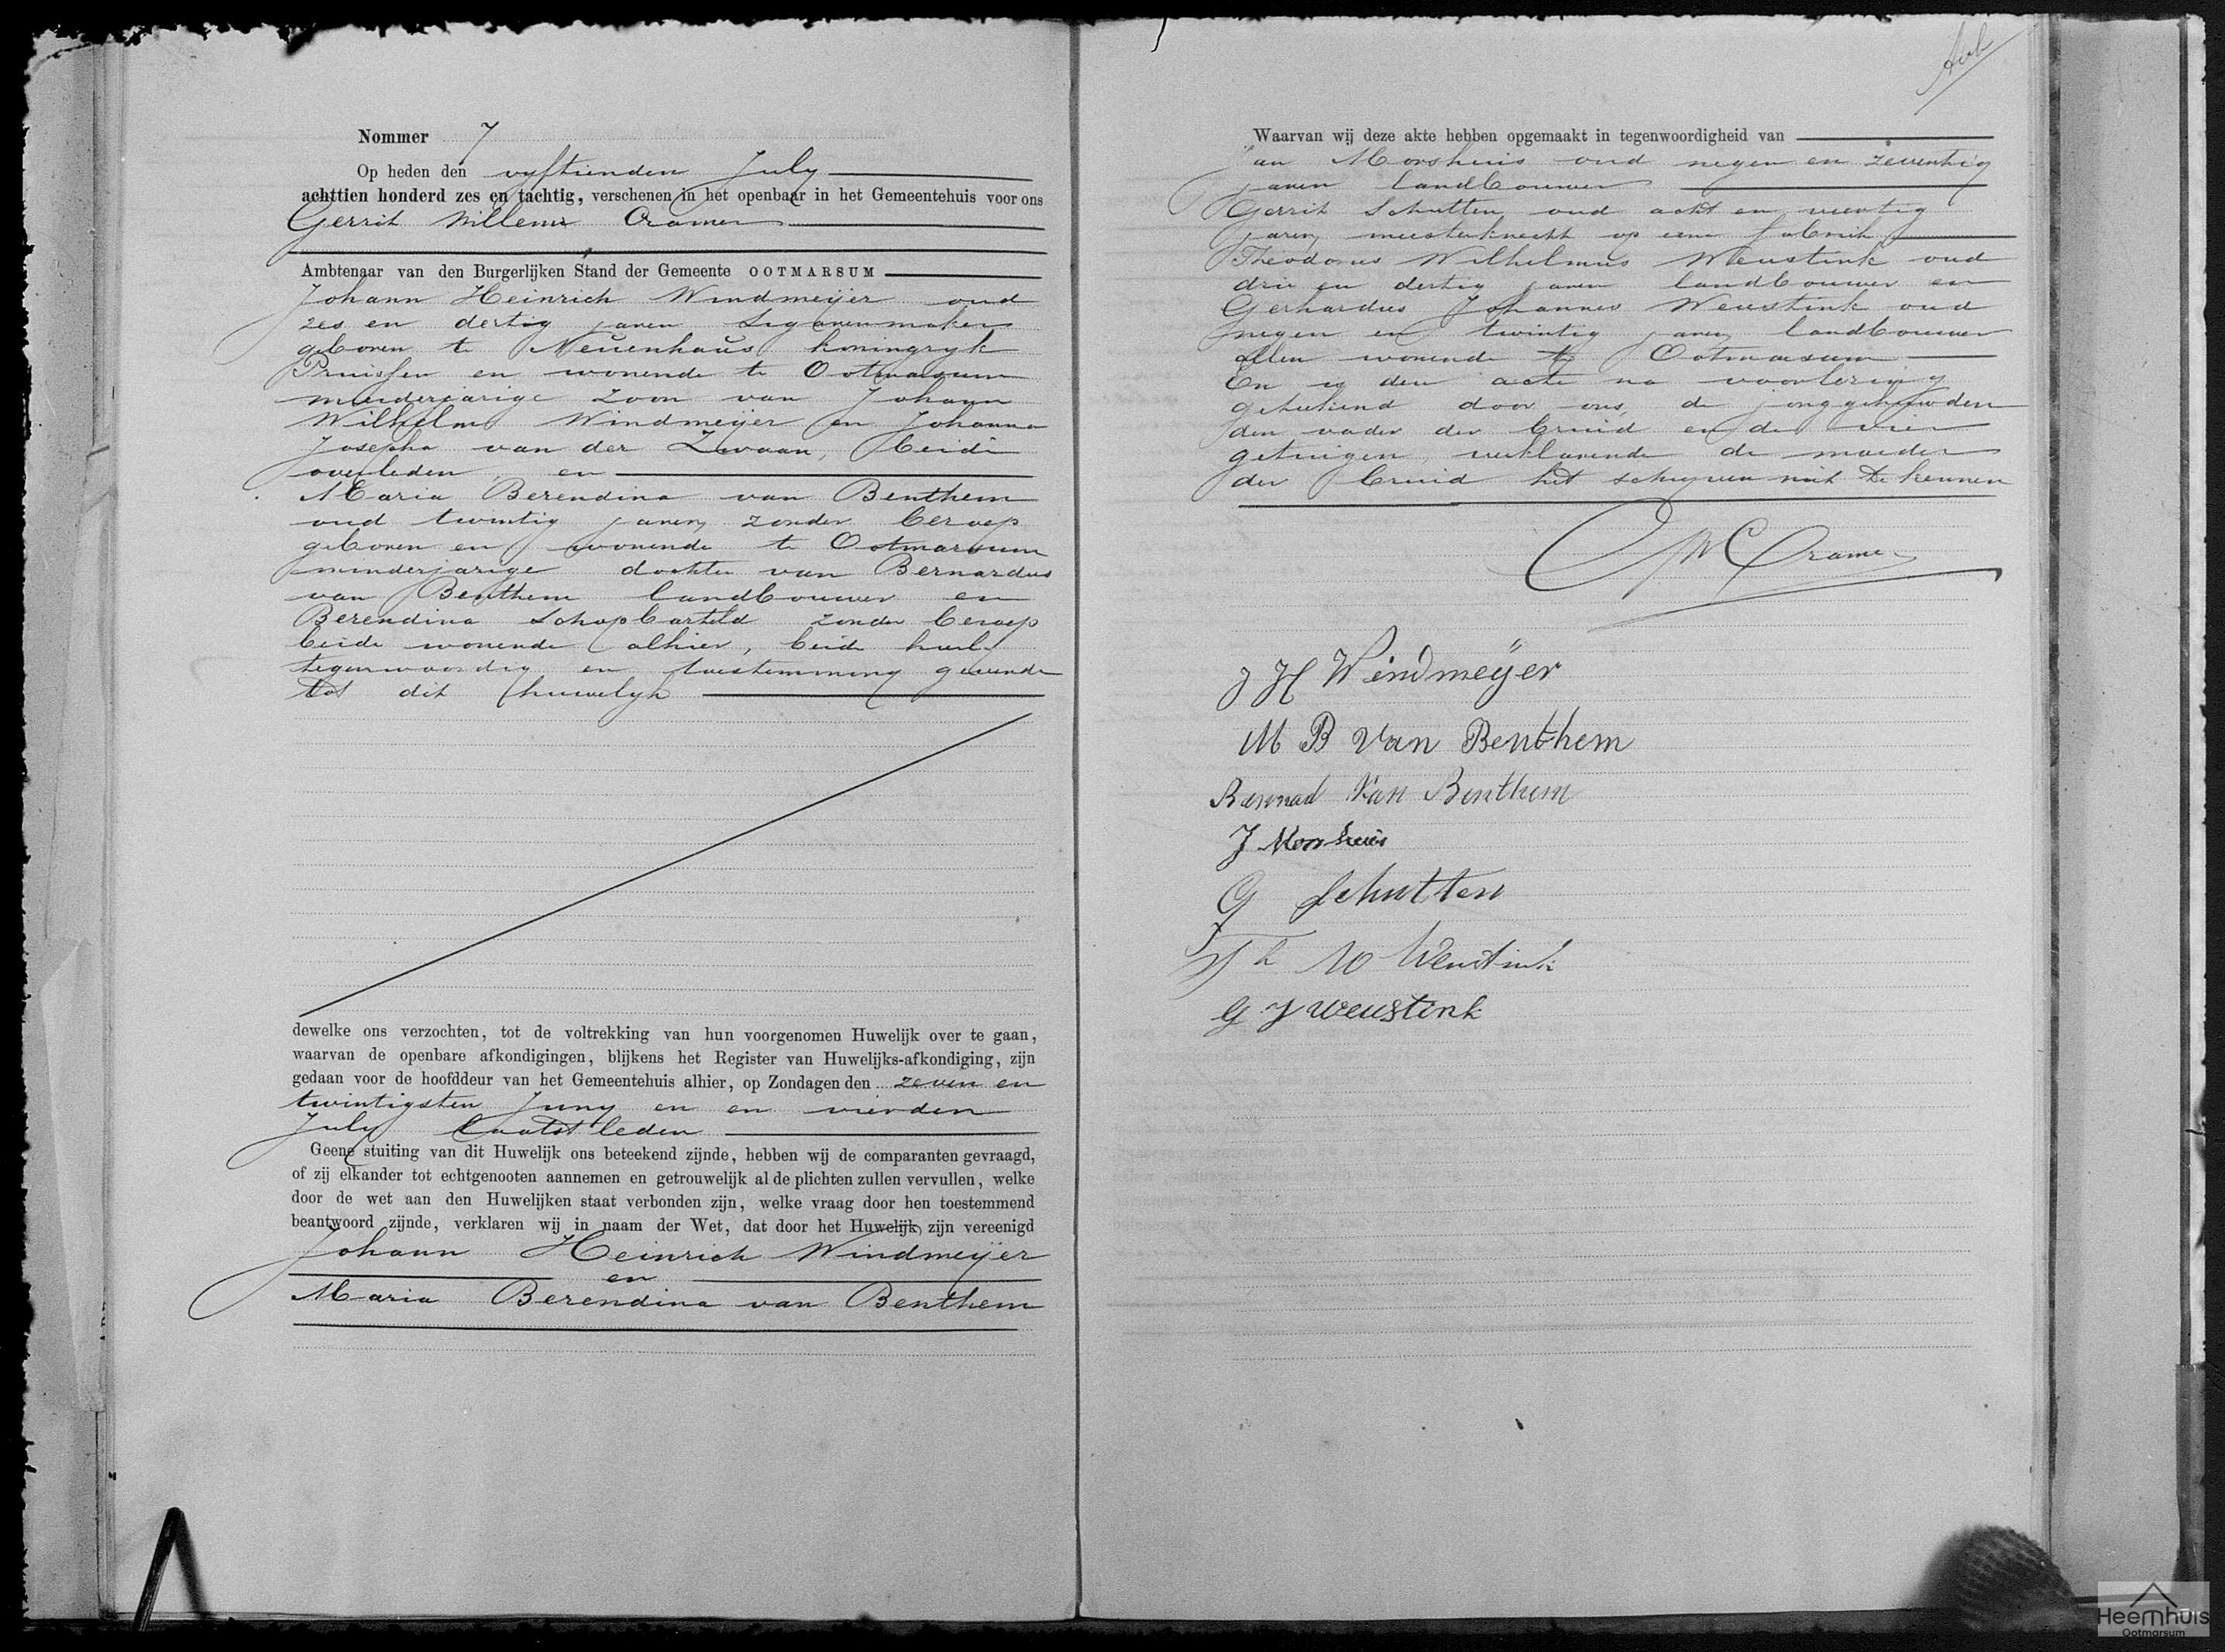 Nommer 7
Op heden den vyftienden July
achttien honderd zes en tachtig, verschenen in het openbaar in het Gemeentehuis voor ons
Gerrit Willem Cramer
Ambtenaar van den Burgerlijken Stand der Gemeente OOTMARSUM
Johann Heinrich Windmeijer oud
zes en dertig jaren sigarenmaker
geboren te Neuenhaus koningryk
Pruissen en wonende te Ootmarsum
meerderjarige zoon van Johann
Wilhelm Windmeijer en Johanna
Josepha van der Zwaan, beide
overleden, en
Maria Berendina van Benthem
oud twintig jaren, zonder beroep
geboren en wonende te Ootmarsum
minderjarige dochter van Bernardus
van Benthem landbouwer en
Berendina Schopbarteld zonder beroep
beide wonende alhier, beide hierby
tegenwoordig en toestemming gevende
tot dit huwelyk
dewelke ons verzochten, tot de voltrekking van hun voorgenomen Huwelijk over te gaan,
waarvan de openbare afkondigingen, blijkens het Register van Huwelijks-afkondiging, zijn
gedaan voor de hoofddeur van het Gemeentehuis alhier, op Zondagen den zeven en
twintigsten Juny en en vierden
July laatstleden
Geene stuiting van dit Huwelijk ons beteekend zijnde, hebben wij de comparanten gevraagd,
of zij elkander tot echtgenooten aannemen en getrouwelijk al de plichten zullen vervullen, welke
door de wet aan den Huwelijken staat verbonden zijn, welke vraag door hen toestemmend
beantwoord zijnde, verklaren wij in naam der Wet, dat door het Huwelijk zijn vereenigd
Johann Heinrich Windmeijer
en
Maria Berendina van Benthem
Waarvan wij deze akte hebben opgemaakt in tegenwoordigheid van
Jan Morshuis oud negen en zeventig
jaren landbouwer
Gerrit Schutten oud acht en veertig
jaren, meesterknecht op eene fabriek
Theodorus Wilhelmus Weustink oud
drie en dertig jaren landbouwer en
Gerhardus Johannes Weustink oud
negen en twintig jaren, landbouwer
allen wonende te Ootmarsum
En is deze acte na voorlezing
geteekend door ons, de jonggehuwden
den vader der bruid en de vier
getuigen, verklarende de moeder
der bruid het schryven niet te kennen
GWCramer
J H Windmeijer
M B Van Benthem
Bernad Van Benthem
J Morshuis
G Schutten
Th W Weustink
G J Weustink
Heemhuis
Ootmarsum